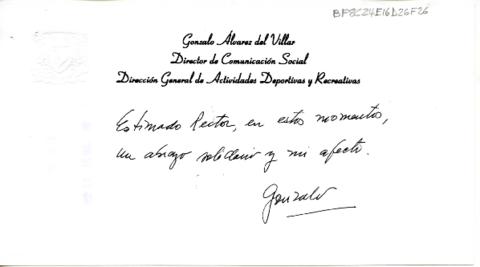 BF8C24E16D26F26
Gonzalo Álvarez del Villar
Director de Comunicación Social
Dirección General de Actividades Deportivas y Recreativas
Estimado Rector, en estos momentos,
un abrazo solidario y mi afecto.
Gonzalo